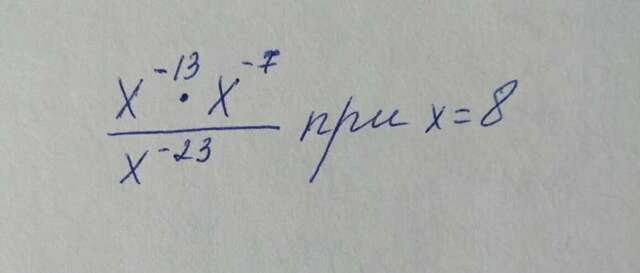 x⁻¹³ · x⁻⁷ / x⁻²³ при x = 8